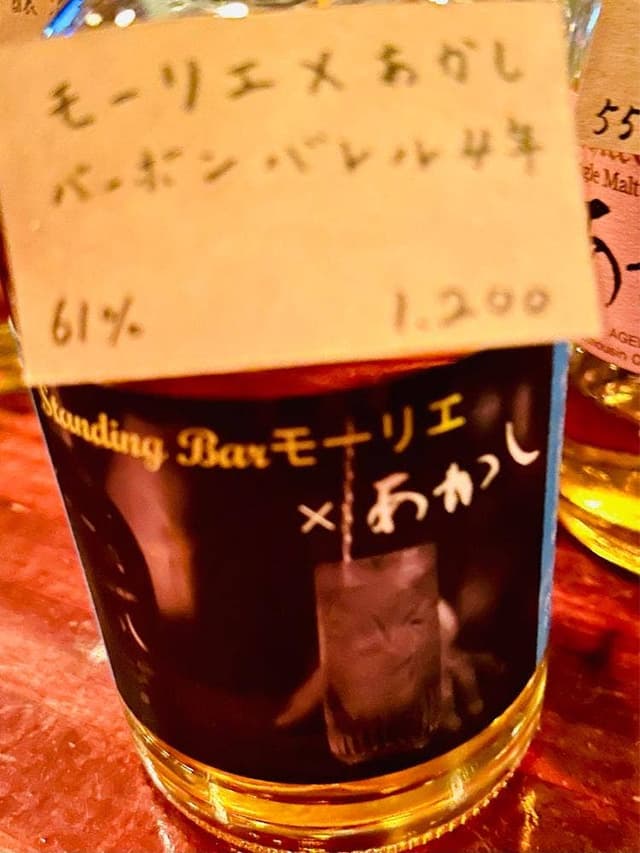 モーリエ×あかし
バーボンバレル4年
61% 1.200
Standing Barモーリエ
×あかし
55
gle Malt
AGE